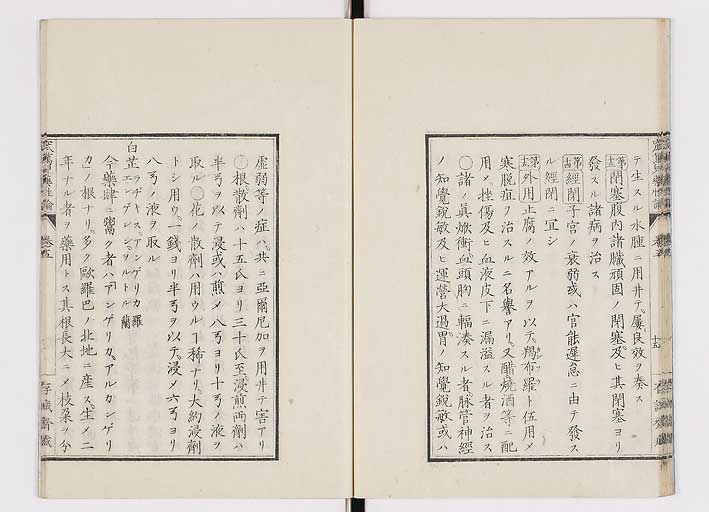 テ生スル水腫ニ用井テ屢良效ヲ奏ス
第十三閉塞腹内諸臓頑固ノ閉塞及ヒ其閉塞ヨリ
發スル諸病ヲ治ス
第十四經閉子宮ノ衰弱或ハ官能遲怠ニ由テ發ス
ル經閉ニ宜シ
第十五外用止腐ノ效アルヲ以テ羯布羅ト伍用メ
寒脱疽ヲ治スルニ名譽アリ又醋燒酒等ニ配
用メ挫傷及ヒ血液皮下ニ漏溢スル者ヲ治ス
○諸ノ眞焮衝血頭胸ニ輻湊スル者脈管神經
ノ知覺鋭敏及ヒ運營大過胃ノ知覺鋭敏或ハ
虚弱等ノ症ハ共ニ亞爾尼加ヲ用井テ害アリ
○根散劑ハ十五氏ヨリ三十氏至浸煎両劑ハ
半丐ヲ以テ浸或ハ煎メ八丐ヨリ十丐ノ液ヲ
取ル○花ノ散劑ハ用ウルヿ稀ナリ大約浸劑
トシ用ウ一錢ヨリ半丐ヲ以テ浸メ六丐ヨリ
八丐ノ液ヲ取ル
白芷 アンゲリカ羅 蘭
今藥肆ニ鬻ク者ハアンゲリカアルカンゲリ
カノ根ナリ多ク歐羅巴ノ北地ニ産ス生メ二
年ナル者ヲ藥用トス其根長大ニメ枝朶ヲ分
卷五